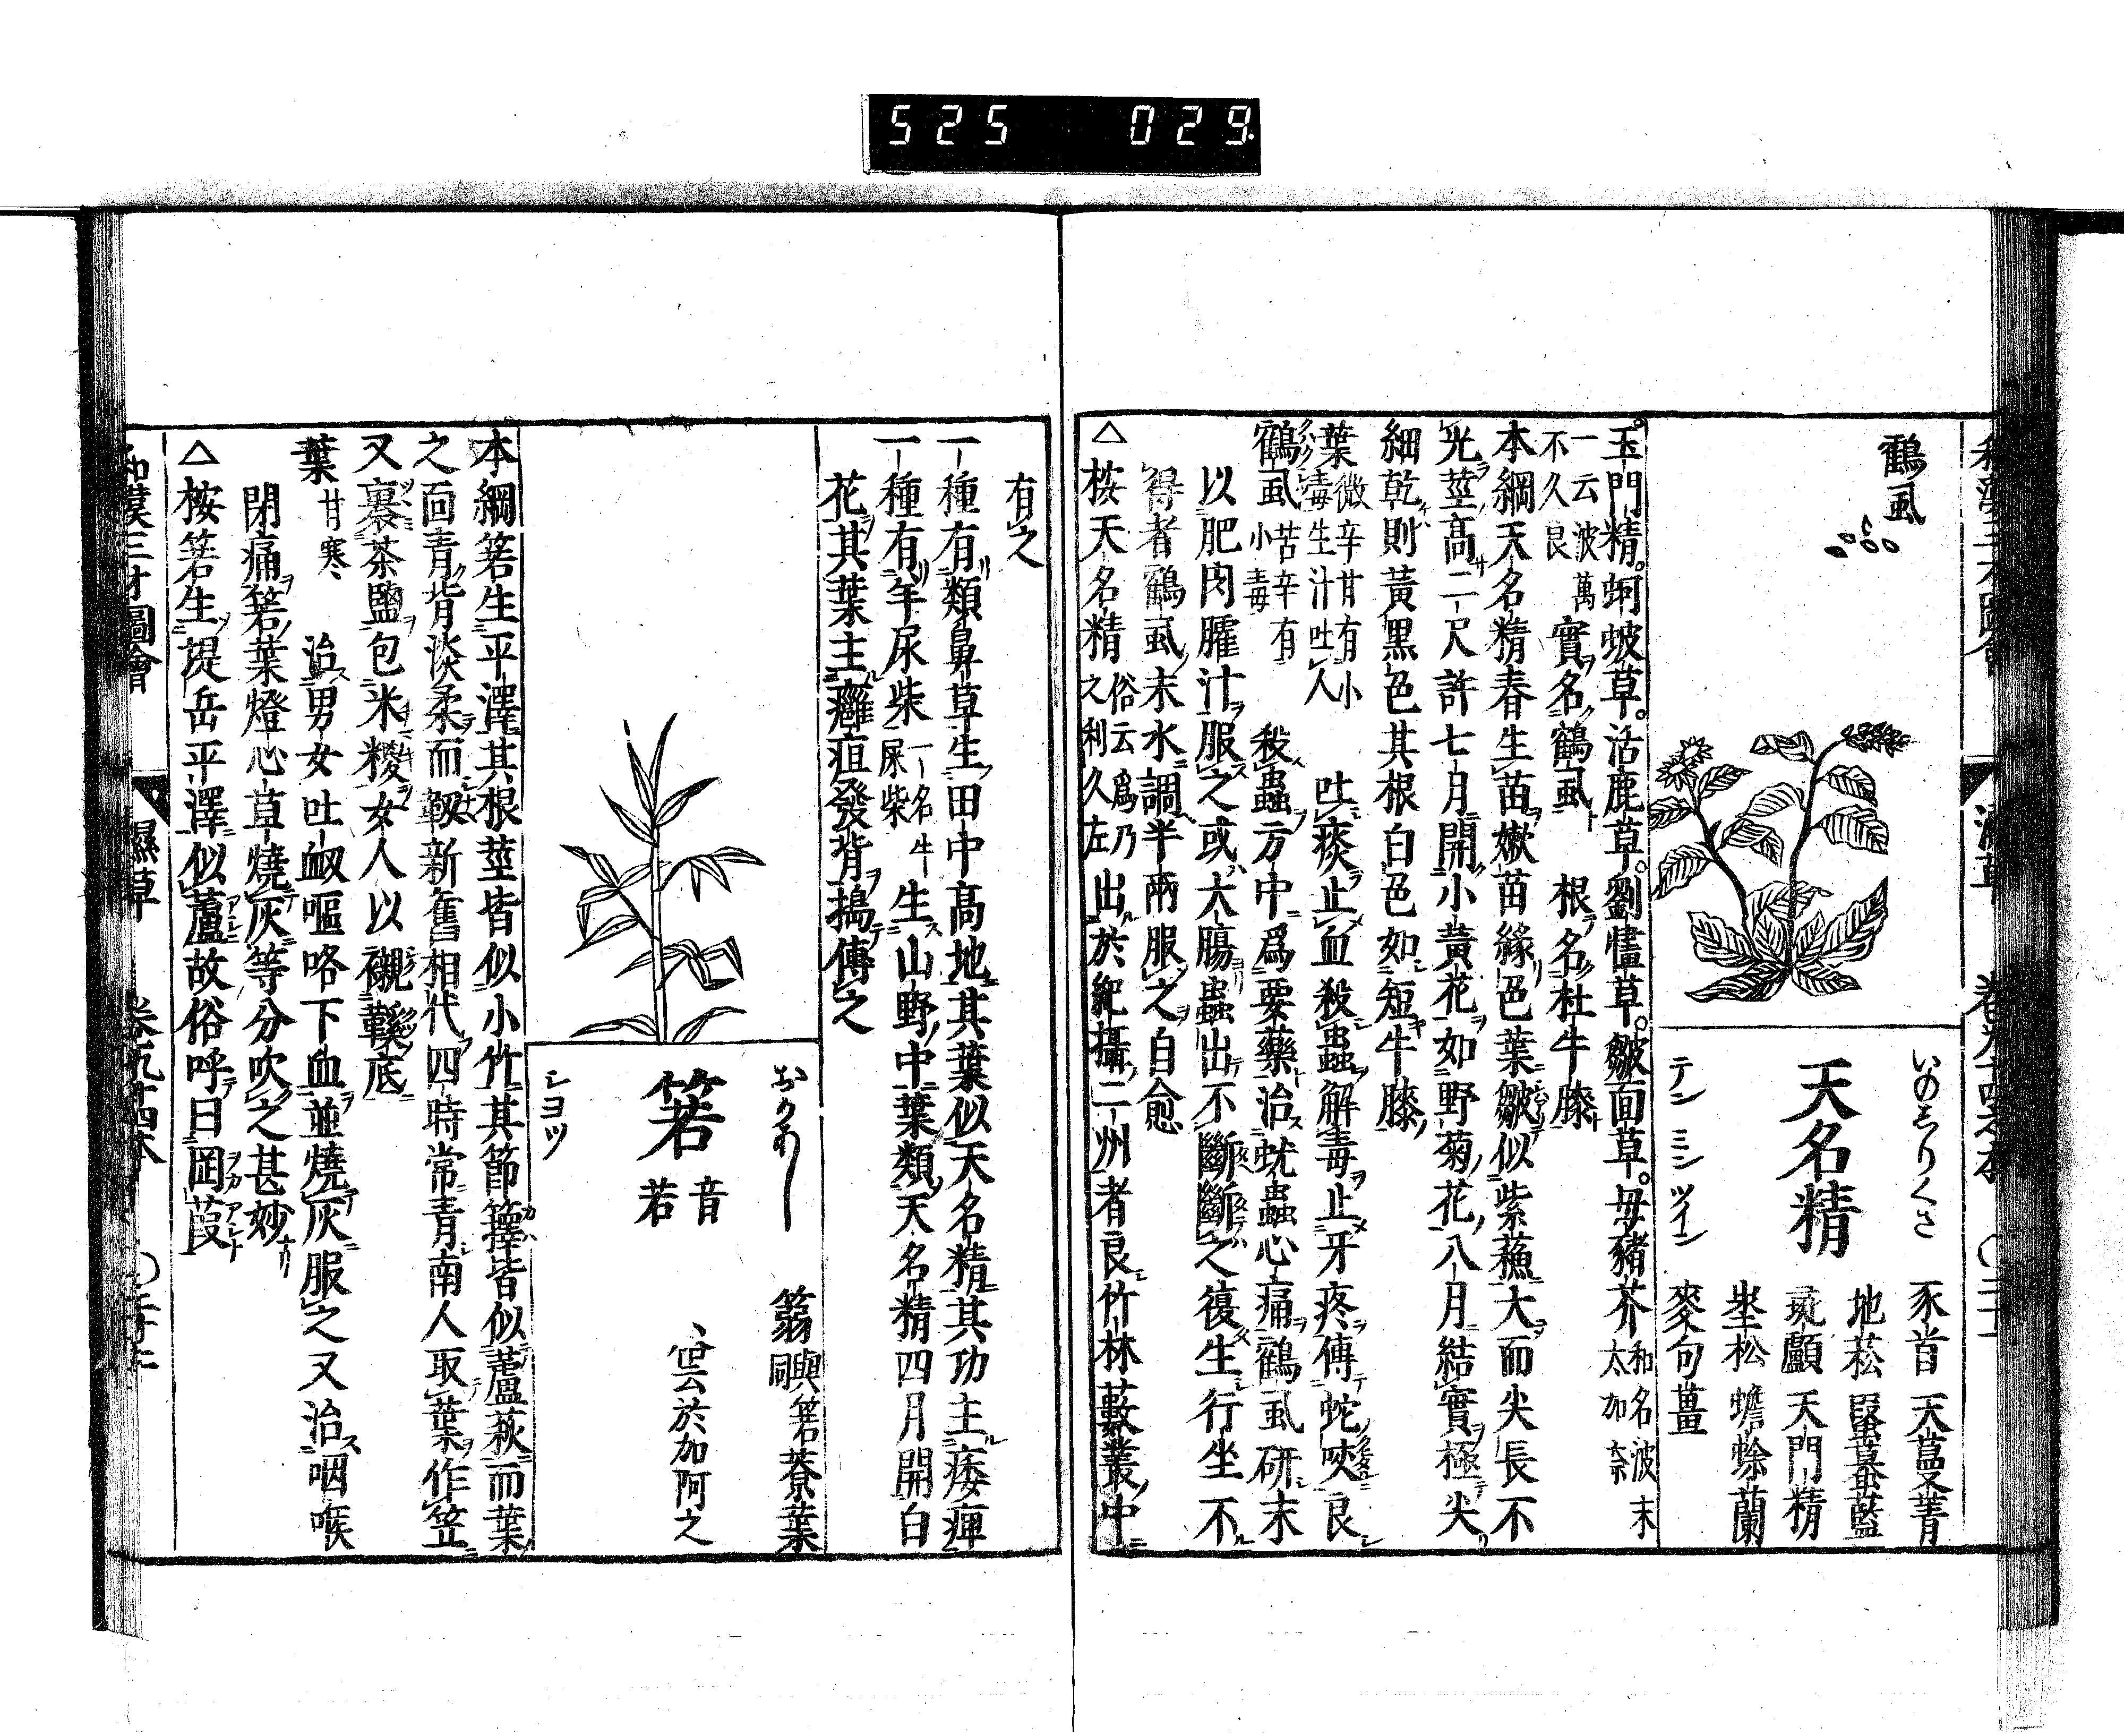 525 029.
鶴虱
いのしりくさ
天名精
テン ミン ツイン
豕首 天蔓菁
地菘 蟇藍
彘顱 天門精
埜松 蟾蜍蘭
麥句薑
玉門精。蚵蚾草。活鹿草。劉懂草。皺面草。母豬芥 和名波末太加奈
一云波萬不久良 實名鶴虱 根名杜牛膝
本綱天名精春生苗嫩苗緑色葉皺似紫蘓大而尖長不
光莖高二尺許七月開小黃花如野菊花八月結實極尖
細乾則黃黒色其根白色如短牛膝
葉 微辛甘有小毒生汁吐人 吐痰止血殺蟲解毒止牙疼傅蛇咬良
鶴虱 苦辛有小毒 殺蟲方中爲要藥治蚘蟲心痛鶴虱研末
以肥肉臛汁服之或大腸蟲出不斷斷之復生行坐不
得者鶴虱末水調半兩服之自愈
△桉天名精 俗云爲乃之利久左 出於紀攝二州者良竹林藪叢中
有之
一種有類鼻草生田中高地其葉似天名精其功主痿痺
一種有羊尿柴 一名牛屎柴 生山野中葉類天名精四月開白
花其葉主癰疽發背搗傅之
箬 音若
シヨツ
篛 與箬同 䕩葉
俗云於加阿之
本綱箬生平澤其根莖皆似小竹其節籜皆似蘆荻而葉
之面青背淡柔而靱新舊相代四時常青南人取葉作笠
又裹茶鹽包米糉女人以襯鞋底
葉 甘寒 治男女吐衂嘔咯下血並燒灰服之又治咽喉
閉痛箬葉燈心草燒灰等分吹之甚妙
△桉箬生堤岳平澤似蘆故俗呼曰岡葭
和漢三才圖會 濕草 卷九十四本